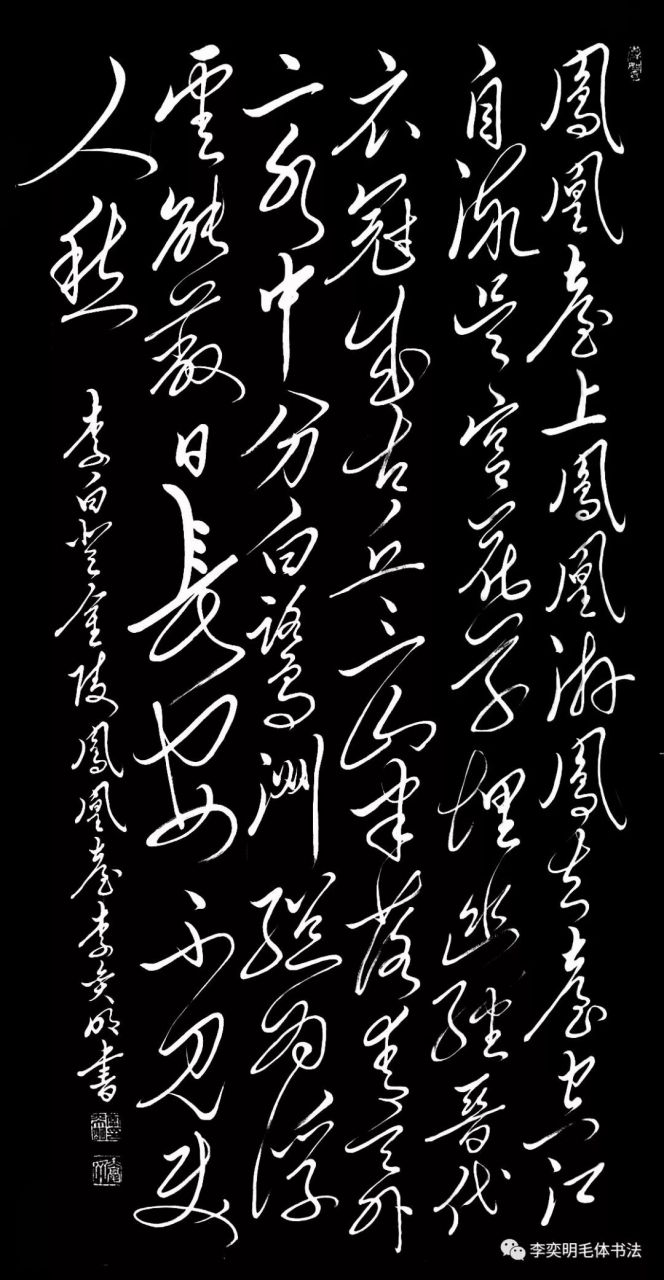 鳳凰臺上鳳凰游鳳去臺空江
自流吳宮花草埋幽徑晉代
衣冠成古丘三山半落青天外
二水中分白鷺洲總為浮
雲能蔽日長安不見使
人愁
李白登金陵鳳凰臺李奕明書
李奕明毛体书法